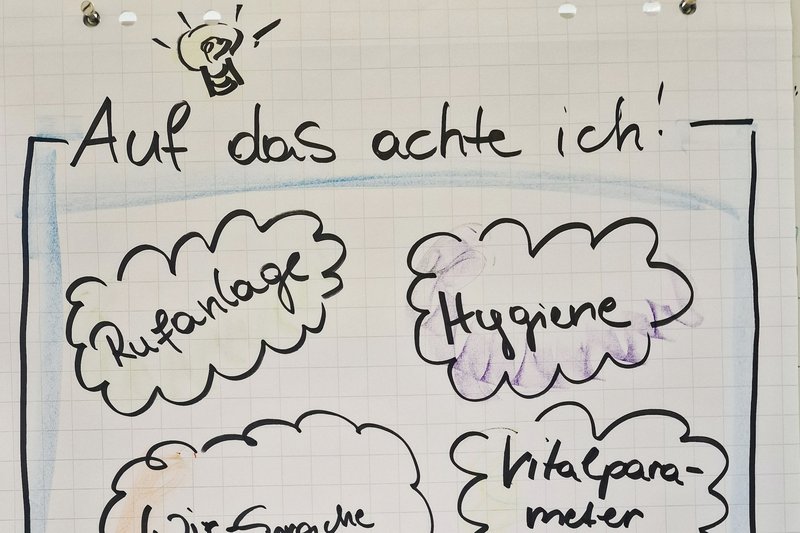 Auf das achte ich!
Rufanlage
Hygiene
Wir-Sprache
Vitalpara-
meter